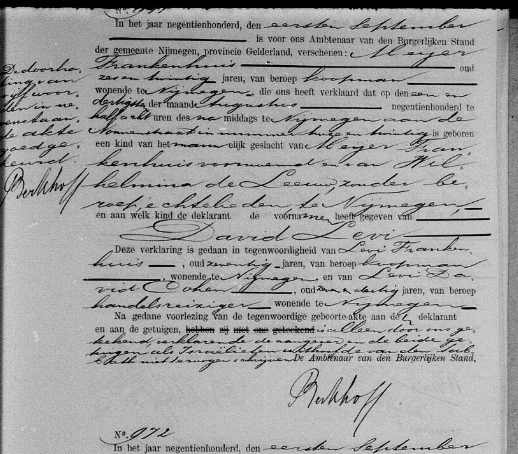 No. 971
In het jaar negentienhonderd, den eersten September
is voor ons Ambtenaar van den Burgerlijken Stand
der gemeente Nijmegen, provincie Gelderland, verschenen: Meijer
Frankenhuis oud
zes en twintig jaren, van beroep koopman
wonende te Nijmegen, die ons heeft verklaard dat op den een en
dertigste der maand Augustus negentienhonderd te
half acht uren des na middags te Nijmegen aan de
straat in nummer twee en twintig is geboren
een kind van het mannelijk geslacht van Meijer Fran-
kenhuis voornoemd en van Wil-
helmina de Leeuw, zonder be-
roep, echtelieden, te Nijmegen,
en aan welk kind de deklarant de voornamen heeft gegeven van
David Levi
Deze verklaring is gedaan in tegenwoordigheid van Levi Franken-
huis, oud zeventig jaren, van beroep koopman
, wonende te Nijmegen, en van Levi Da-
vid Cohen, oud en dertig jaren, van beroep
handelsreiziger wonende te Nijmegen
Na gedane voorlezing van de tegenwoordige geboorte-akte aan de deklarant
en aan de getuigen, hebben zij met ons geteekend is alleen door ons ge-
teekend, verklarende de aangever en de beide ge-
tuigen als Israëlieten uithoofde van den Sab-
bath niet te mogen schrijven De Ambtenaar van den Burgerlijken Stand,
Berkhoff
De doorha-
ling van
vijf woor-
den in ne-
venstaan-
de akte
goedge-
keurd.
Berkhoff
No. 972
In het jaar negentienhonderd, den eersten September